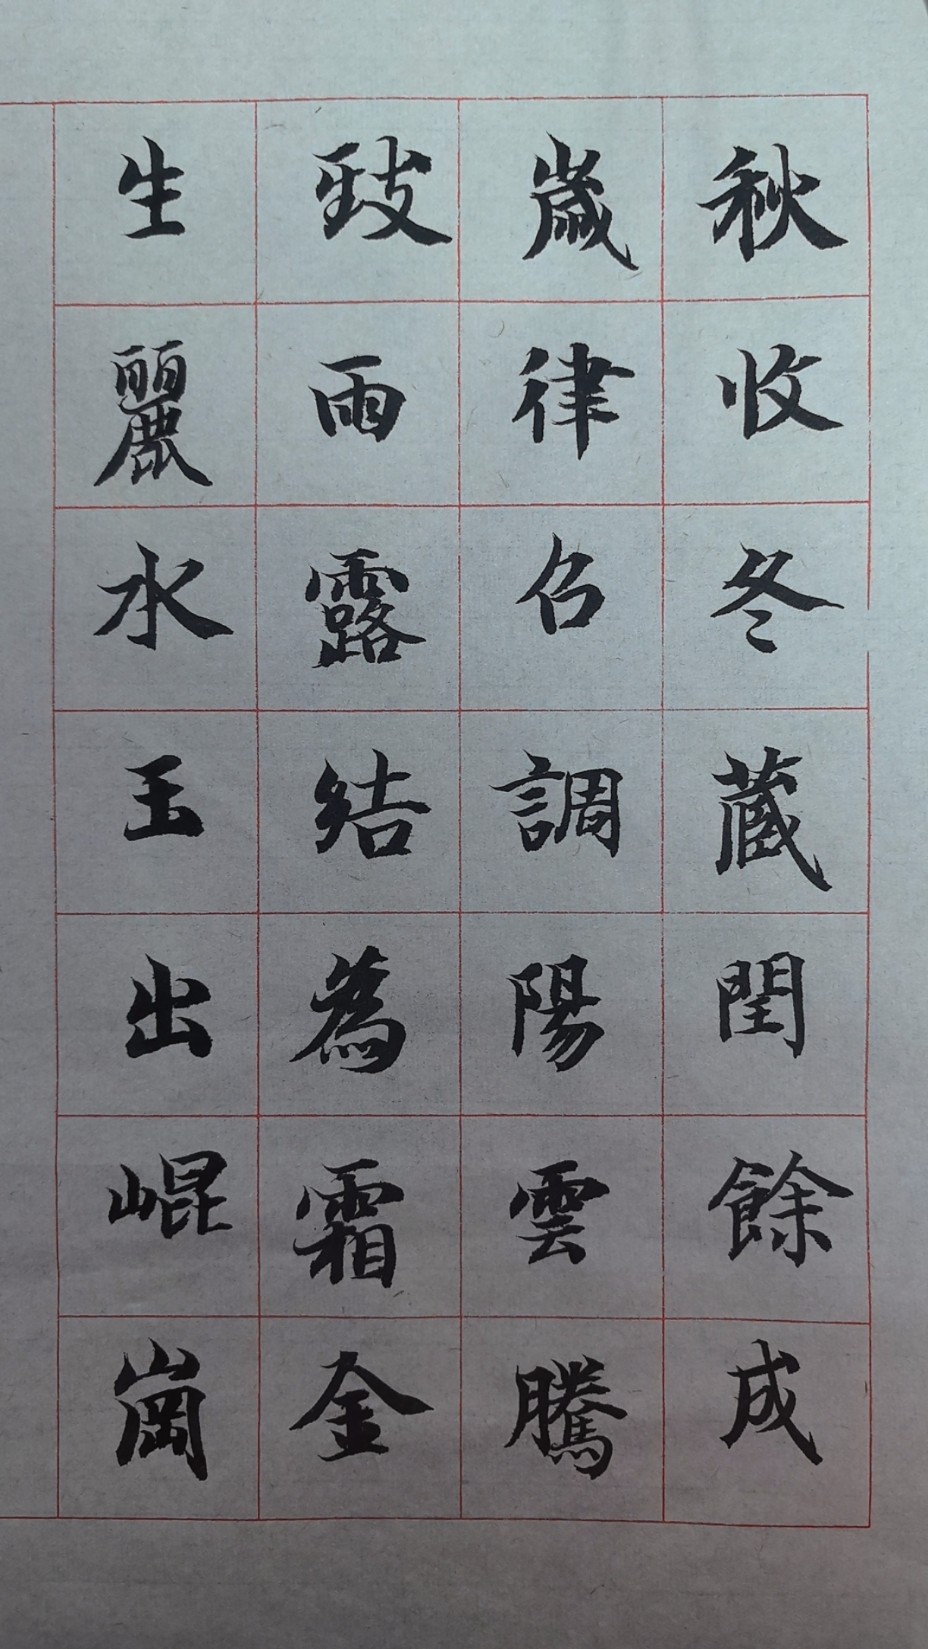 秋收冬蔵閏餘成
歲律召調陽雲騰
致雨露結為霜金
生麗水玉出崐崗